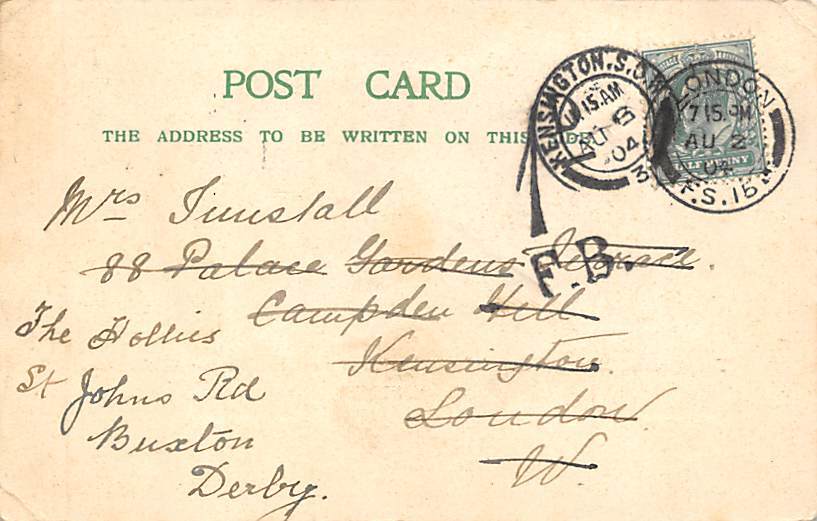 POST CARD
THE ADDRESS TO BE WRITTEN ON THIS SIDE
KENSINGTON. S.O. W
11.15.AM
AU 3
04
LONDON
7 15.PM
AU 2
04
F.S. 16
HALFPENNY
F.B.
Mrs Tunstall
88 Palace Gardens Terrace.
Campden Hill
Kensington.
London.
W.
The Hollies
St Johns Rd
Buxton
Derby.